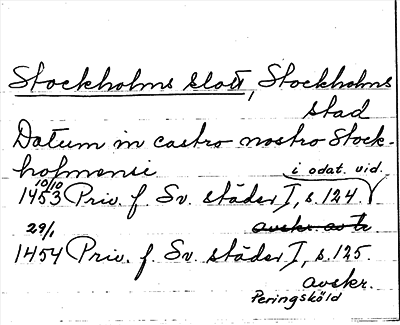 Stockholms slott, Stockholms
stad
Datum in castro nostro Stock-
holmensi
i odat. vid.
10/10
1453 Priv. f. Sv. städer I, s. 124.
29/1 avskr. av
1454 Priv. f. Sv. städer I, s. 125.
avskr.
Peringsköld